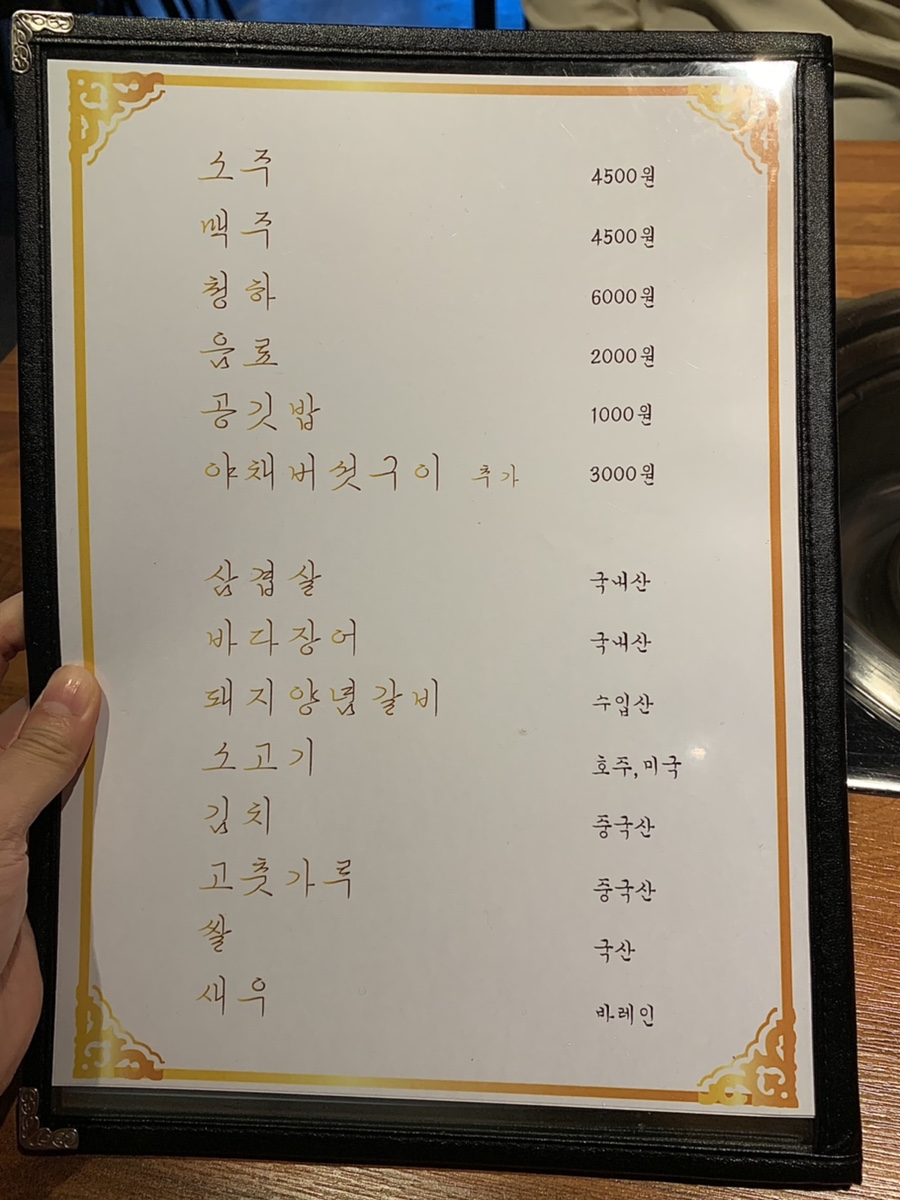 소주 4500원
맥주 4500원
청하 6000원
음료 2000원
공깃밥 1000원
야채버섯구이 추가 3000원
삼겹살 국내산
바다장어 국내산
돼지양념갈비 수입산
소고기 호주,미국
김치 중국산
고춧가루 중국산
쌀 국산
새우 바레인